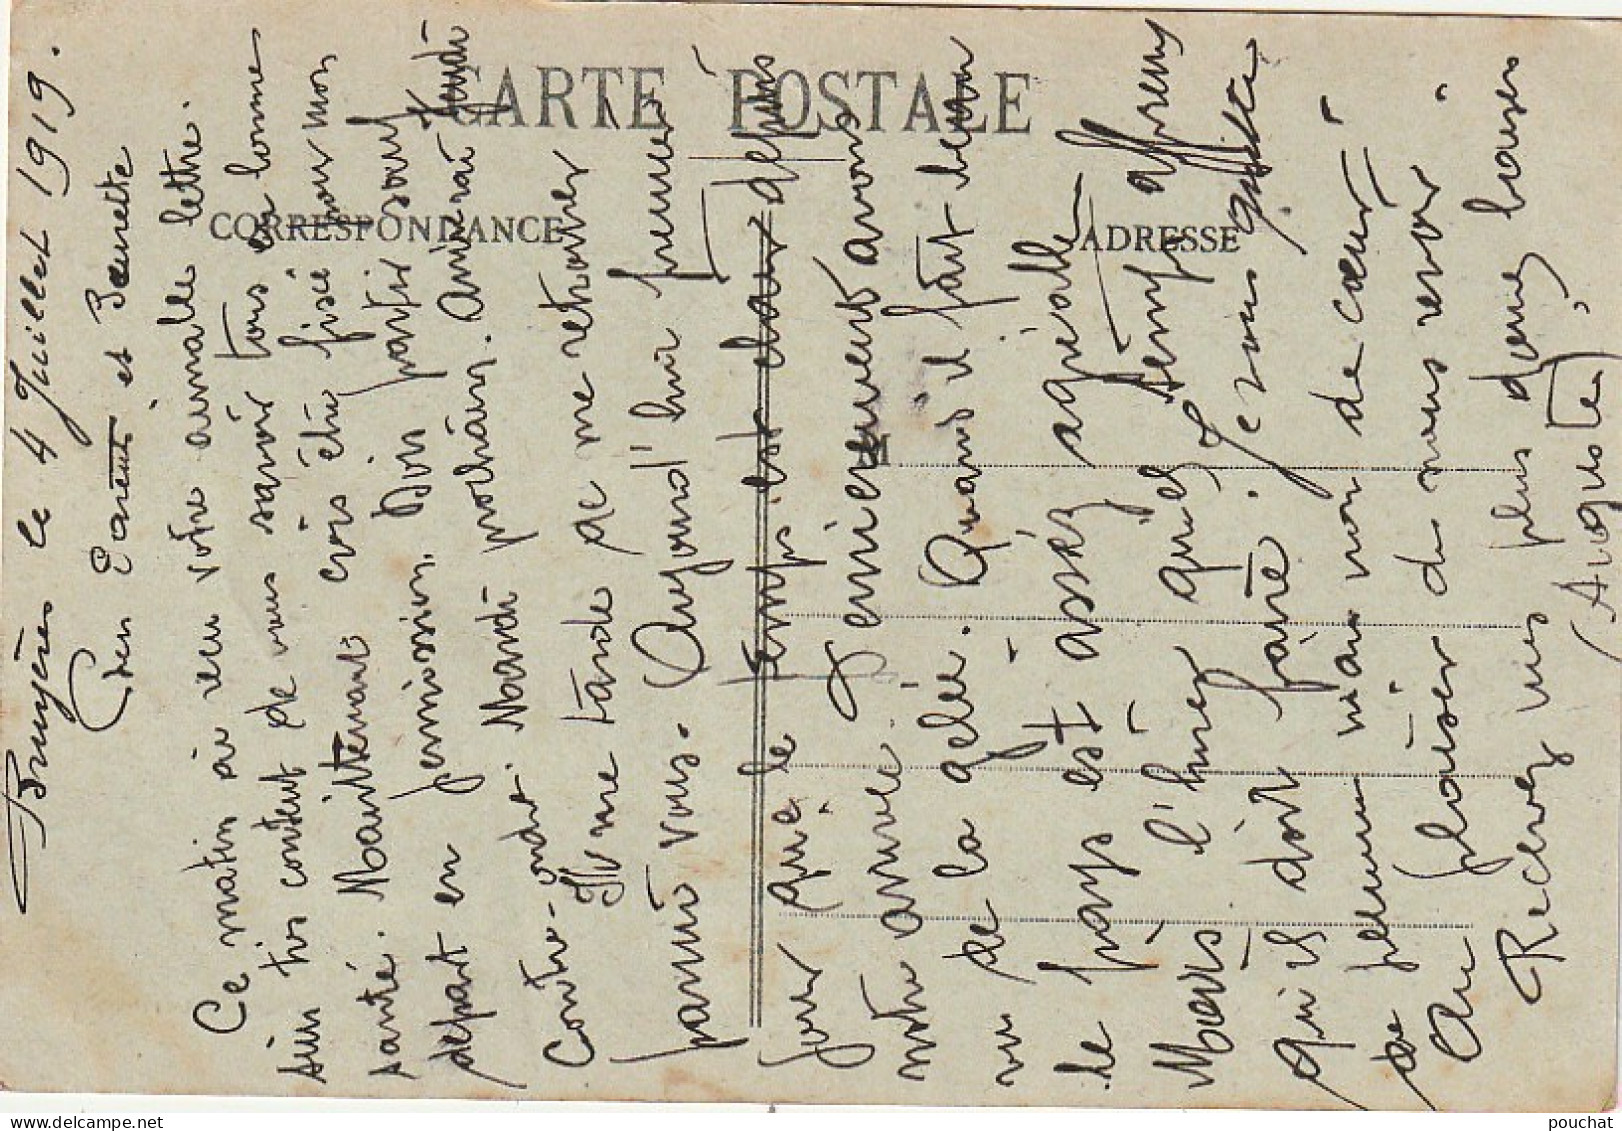 Bruyères le 4 Juillet 1919.
Chers Parents et Paulette
Ce matin ai reçu votre aimable lettre.
suis très content de vous savoir tous en bonne
santé. Maintenant crois être fixé pour mon
départ en permission. Dois partir sauf
Contre-ordre Mardi prochain. Arriverai Jeudi
Il me tarde de me retrouver
parmi vous. Aujourd'hui premier
jour que le temps est clair depuis
notre arrivée. Dernièrement avons
vu de la gelée. Quand il fait beau
le pays est assez agréable
Mais l'hiver quel temps affreux
qu'il doit faire. Je vous quitte
de plume mais non de cœur
Au plaisir de vous revoir
Recevez mes plus doux baisers
Auguste
CARTE POSTALE
CORRESPONDANCE
ADRESSE
M
pouchat